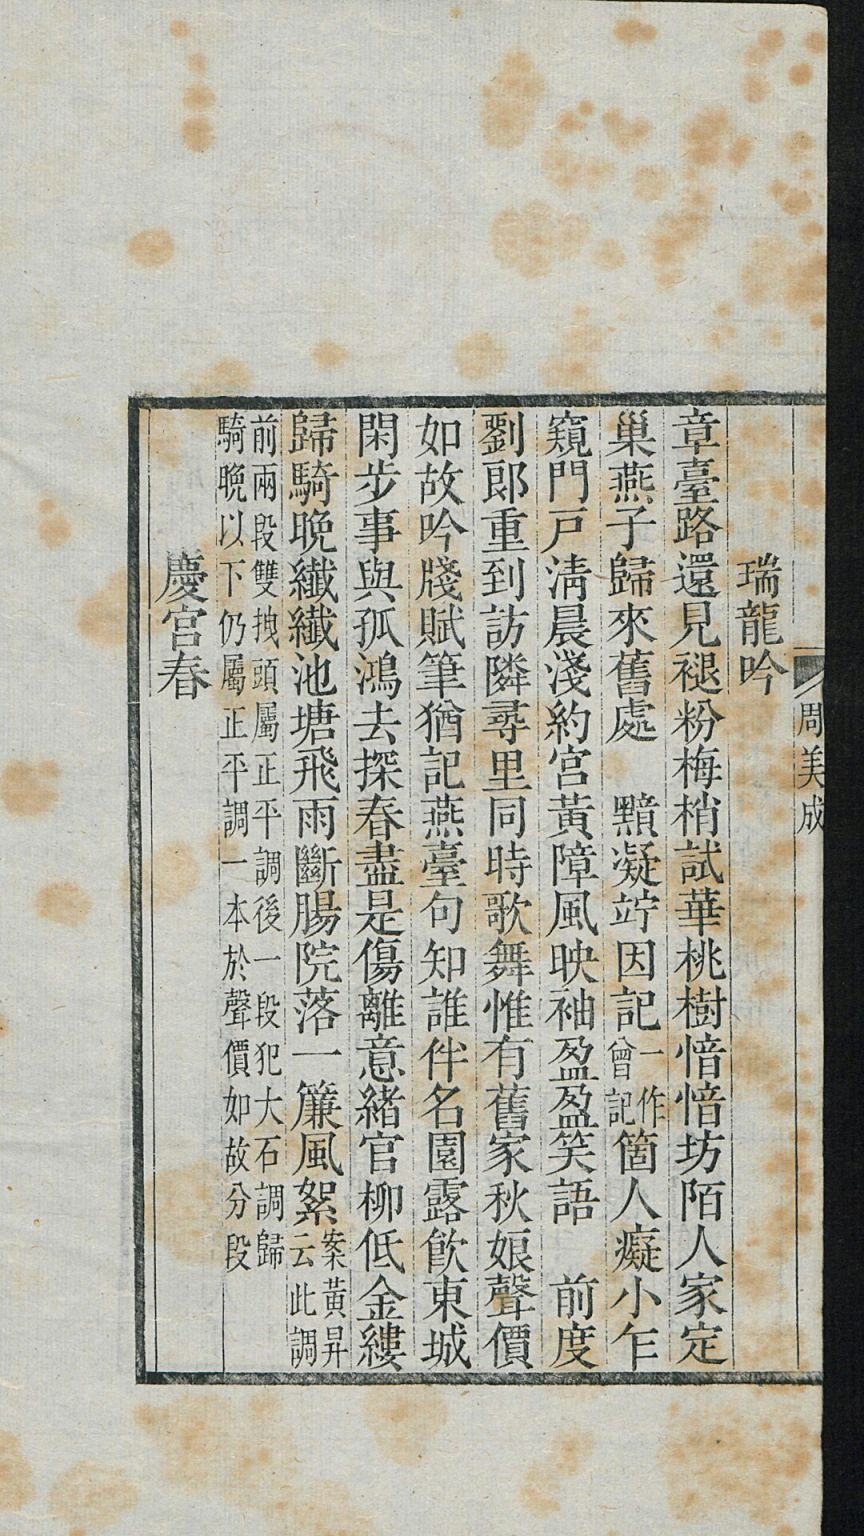 周美成
瑞龍吟
章臺路還見褪粉梅梢試華桃樹愔愔坊陌人家定
巢燕子歸來舊處　黯凝竚因記一作曾記箇人癡小乍
窺門戸淸晨淺約宮黃障風映袖盈盈笑語　前度
劉郎重到訪隣尋里同時歌舞惟有舊家秋娘聲價
如故吟牋賦筆猶記燕臺句知誰伴名園露飮東城
閑步事與孤鴻去探春盡是傷離意緒官柳低金縷
歸騎晚纖纖池塘飛雨斷腸院落一簾風絮案黃昇云此調
前兩段雙拽頭屬正平調後一段犯大石調歸
騎晚以下仍屬正平調一本於聲價如故分段
慶宮春